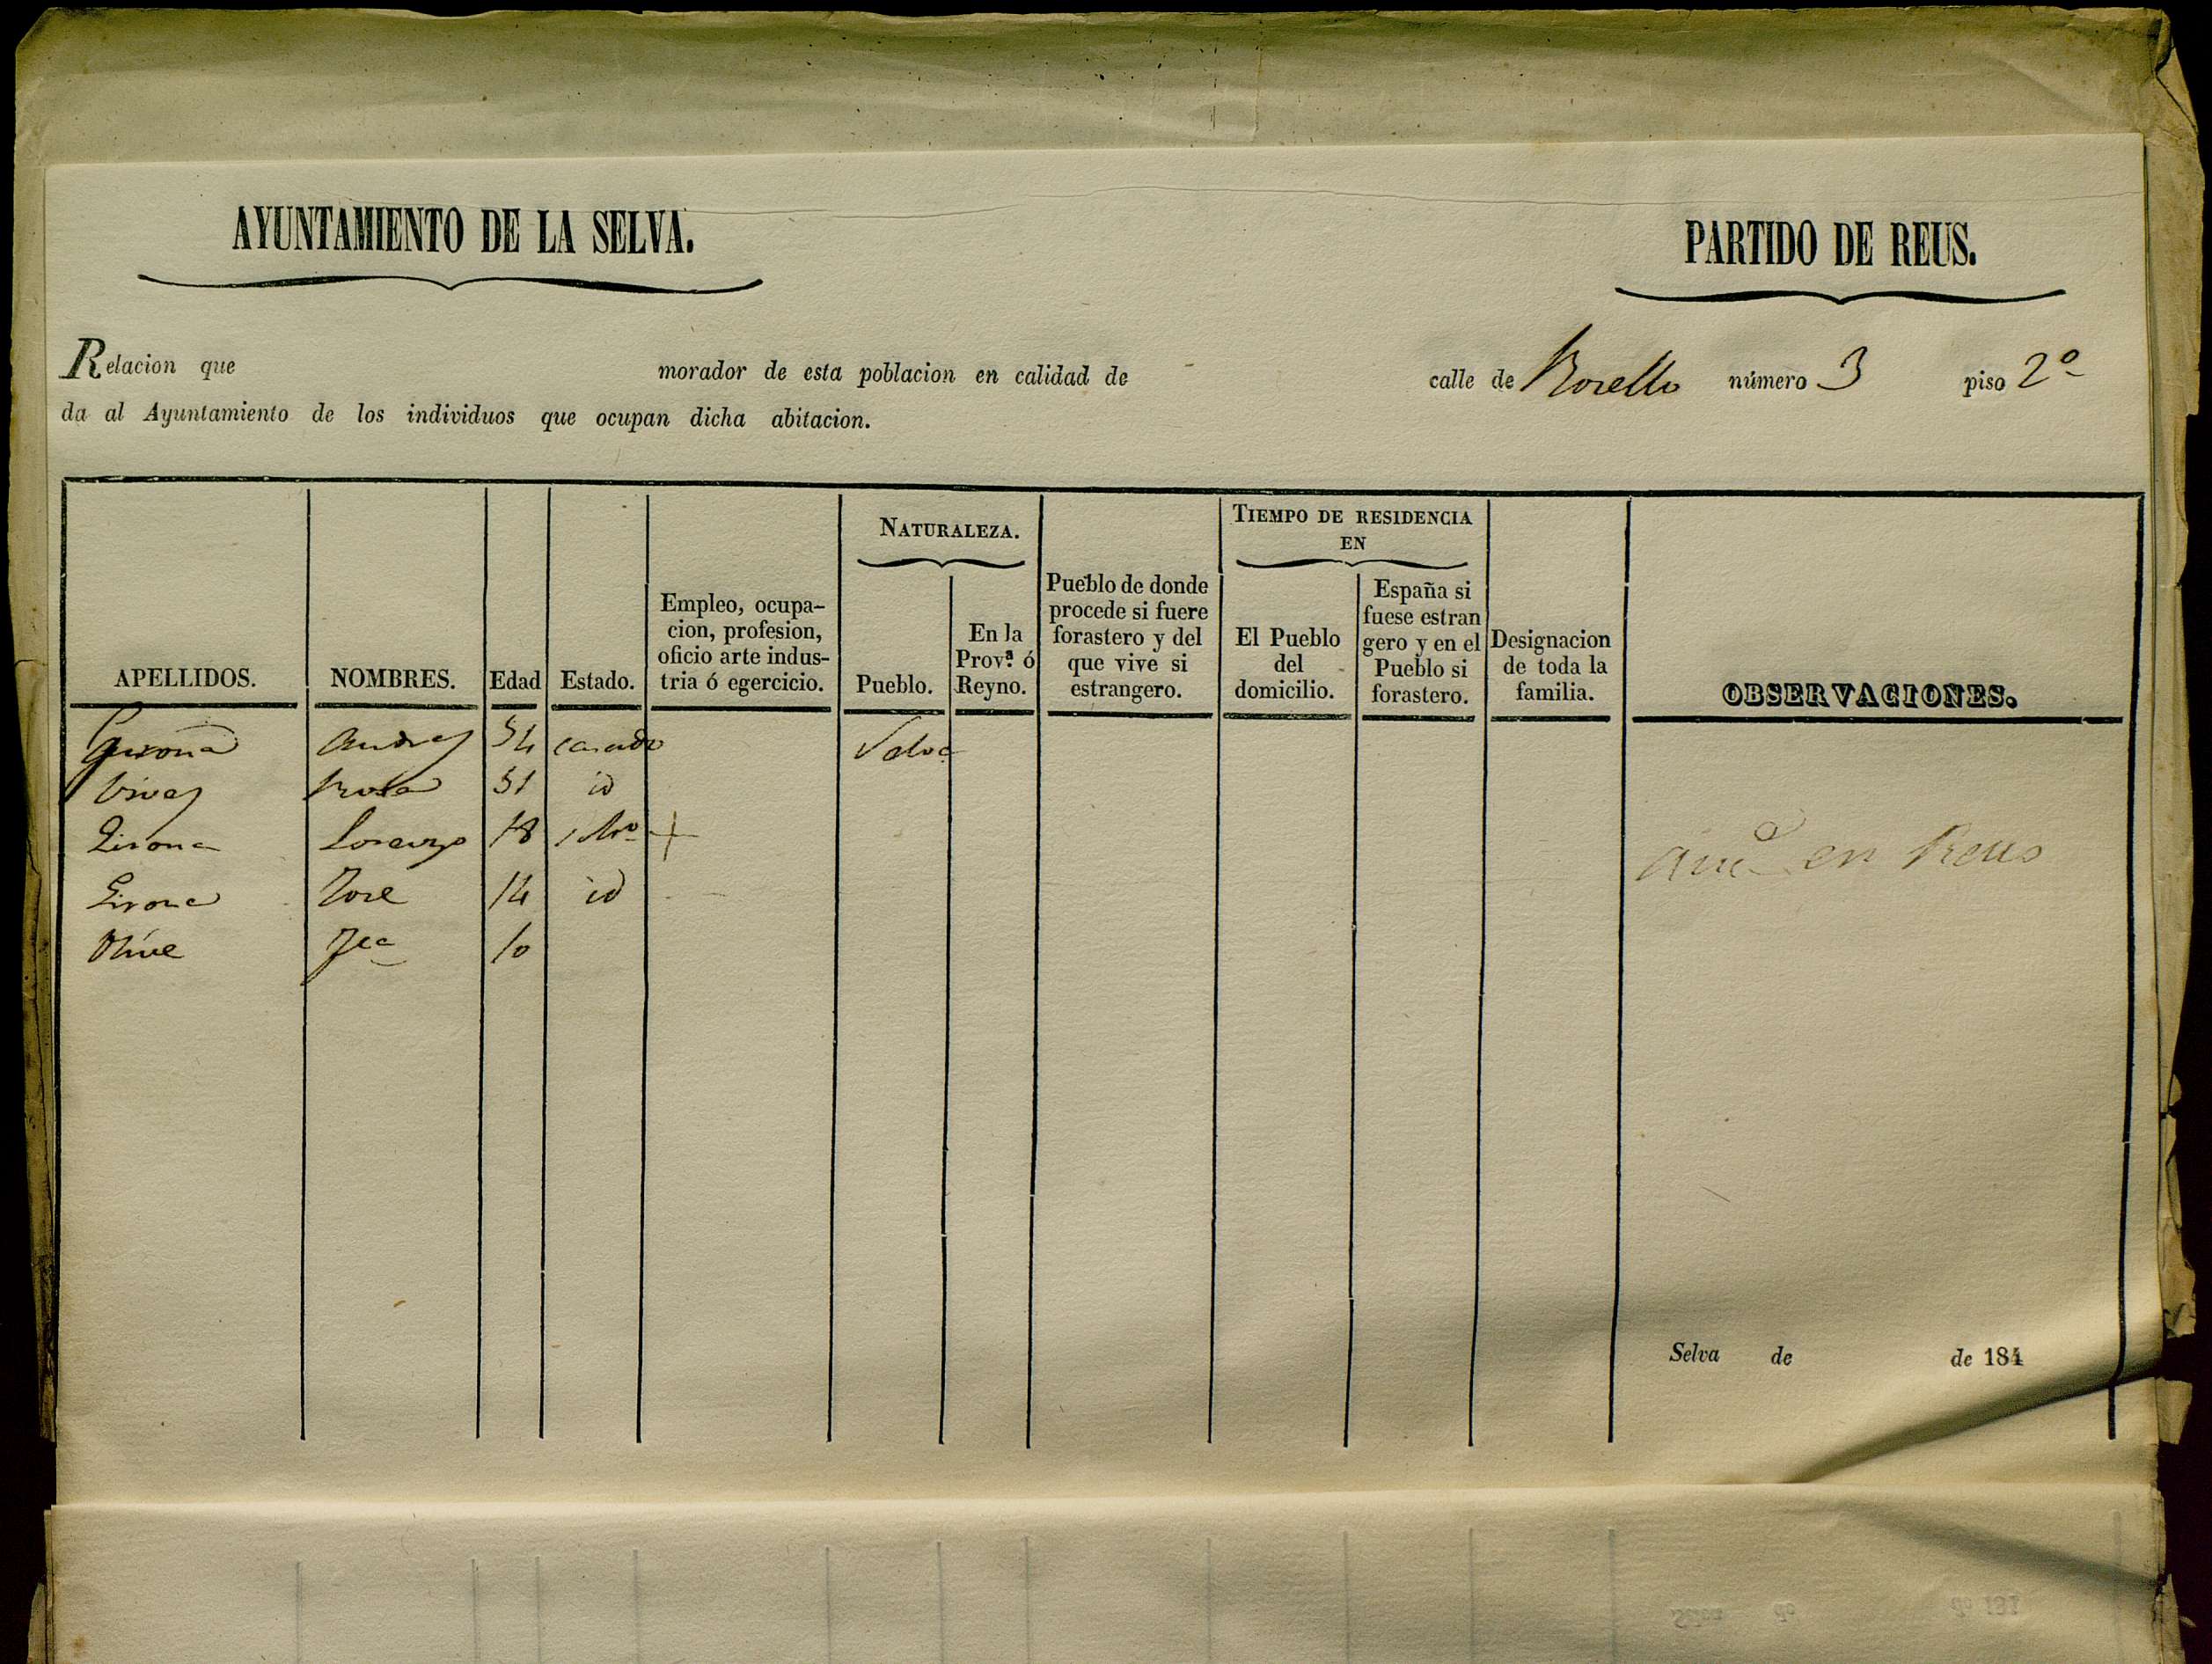 AYUNTAMIENTO DE LA SELVA.
PARTIDO DE REUS.
Relacion que morador de esta poblacion en calidad de calle de Rosello número 3 piso 2º
da al Ayuntamiento de los individuos que ocupan dicha abitacion.
APELLIDOS.
NOMBRES.
Edad
Estado.
Empleo, ocupa-
cion, profesion,
oficio arte indus-
tria ó egercicio.
NATURALEZA.
Pueblo.
En la
Prov.ª ó
Reyno.
Pueblo de donde
procede si fuere
forastero y del
que vive si
estrangero.
TIEMPO DE RESIDENCIA
EN
El Pueblo
del
domicilio.
España si
fuese estran
gero y en el
Pueblo si
forastero.
Designacion
de toda la
familia.
OBSERVACIONES.
Girona Andres 54 casado Selva
Vivas Rosa 51 id
Girona Lorenzo 18 +
en Reus
Girona Jose 14 id
Olive 10
Selva de de 184